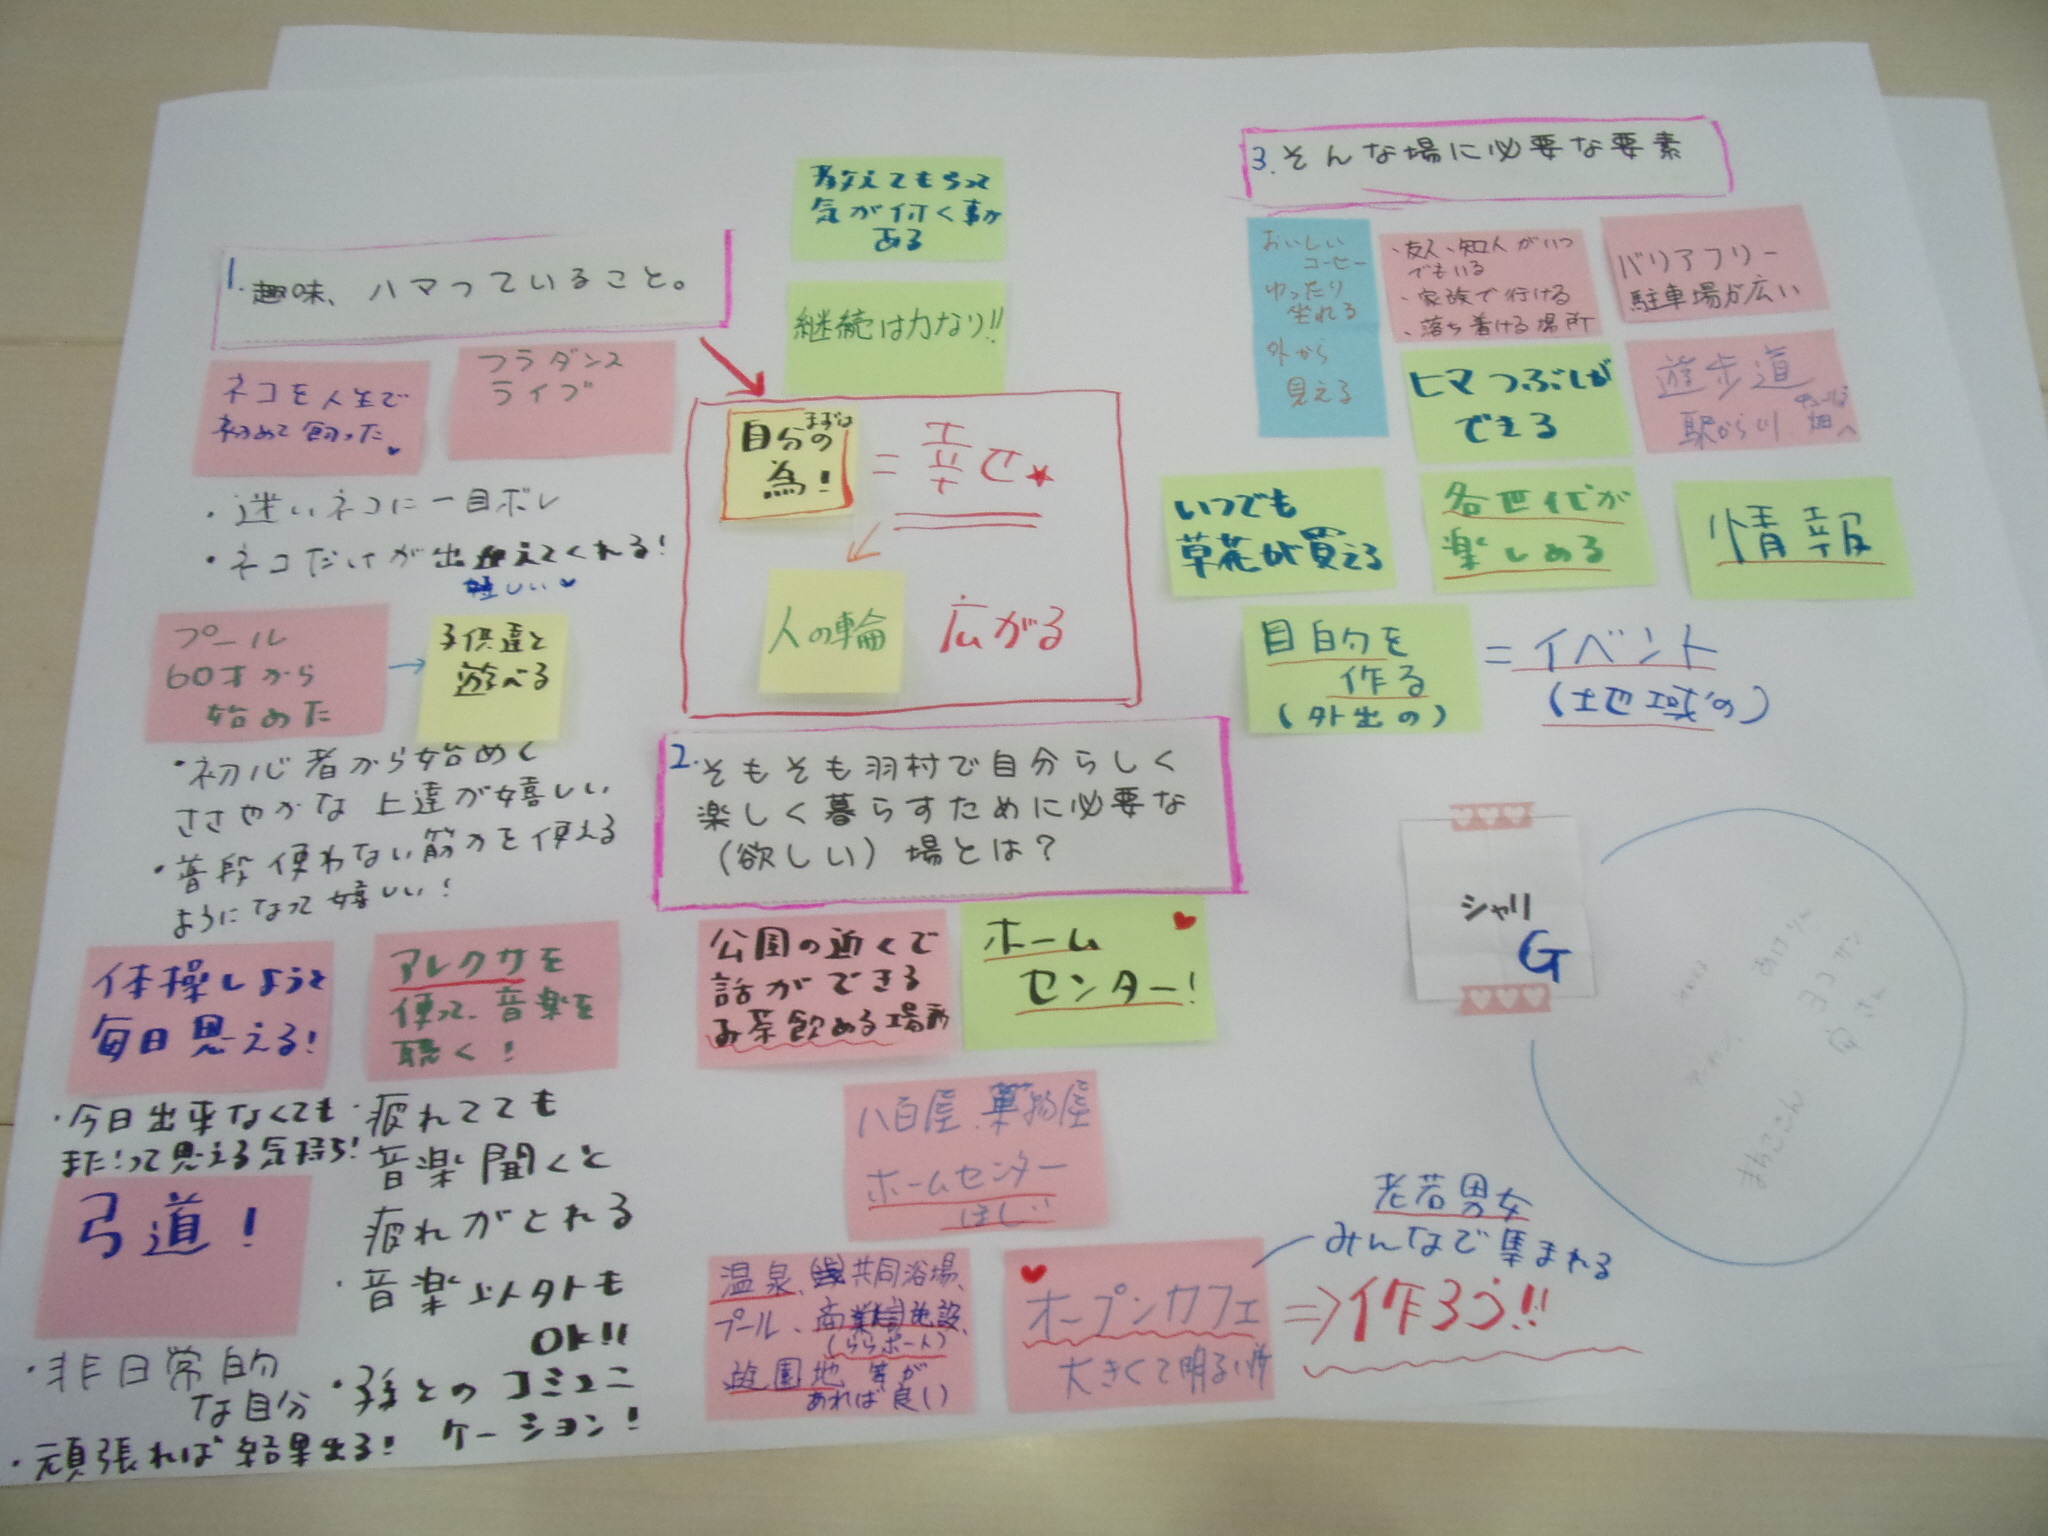 1.趣味、ハマっていること。
ネコを人生で
初めて飼った
フラダンス
ライブ
・迷いネコに一目ボレ
・ネコだけが出迎えてくれる!
嬉しい
プール
60才から
始めた
子供達と
遊べる
・初心者から始めて
ささやかな上達が嬉しい
・普段使わない筋力を使える
ようになって嬉しい!
体操しようと
毎日思える!
・今日出来なくても
また!って思える気持ち!
アレクサを
使って、音楽を
聴く!
・疲れてても
音楽聞くと
疲れがとれる
・音楽以外も
OK!!
・孫とのコミュニ
ケーション!
弓道!
・非日常的
な自分
・頑張れば結果出る!
教えてもらって
気が付く事が
ある
継続は力なり!!
まずは
自分の
為!
=幸せ★
人の輪
広がる
2.そもそも羽村で自分らしく
楽しく暮らすために必要な
(欲しい)場とは?
公園の近くで
話ができる
お茶飲める場所
ホーム
センター!
八百屋、果物屋
ホームセンター
ほしい
温泉、共同浴場、
プール、商業施設、
(ららポート)
遊園地 等が
あれば良い
オープンカフェ
大きくて明るい所
老若男女
みんなで集まれる
⇒作ろう!!
3.そんな場に必要な要素
おいしい
コーヒー
ゆったり
坐れる
外から
見える
・友人、知人がいつ
でもいる
・家族で行ける
・落ち着ける場所
バリアフリー
駐車場が広い
ヒマつぶしが
できる
遊歩道
駅から川
畑へ
いつでも
草花が買える
各世代が
楽しめる
情報
目的を
作る
(外出の)
=イベント
(地域の)
シャリ
G